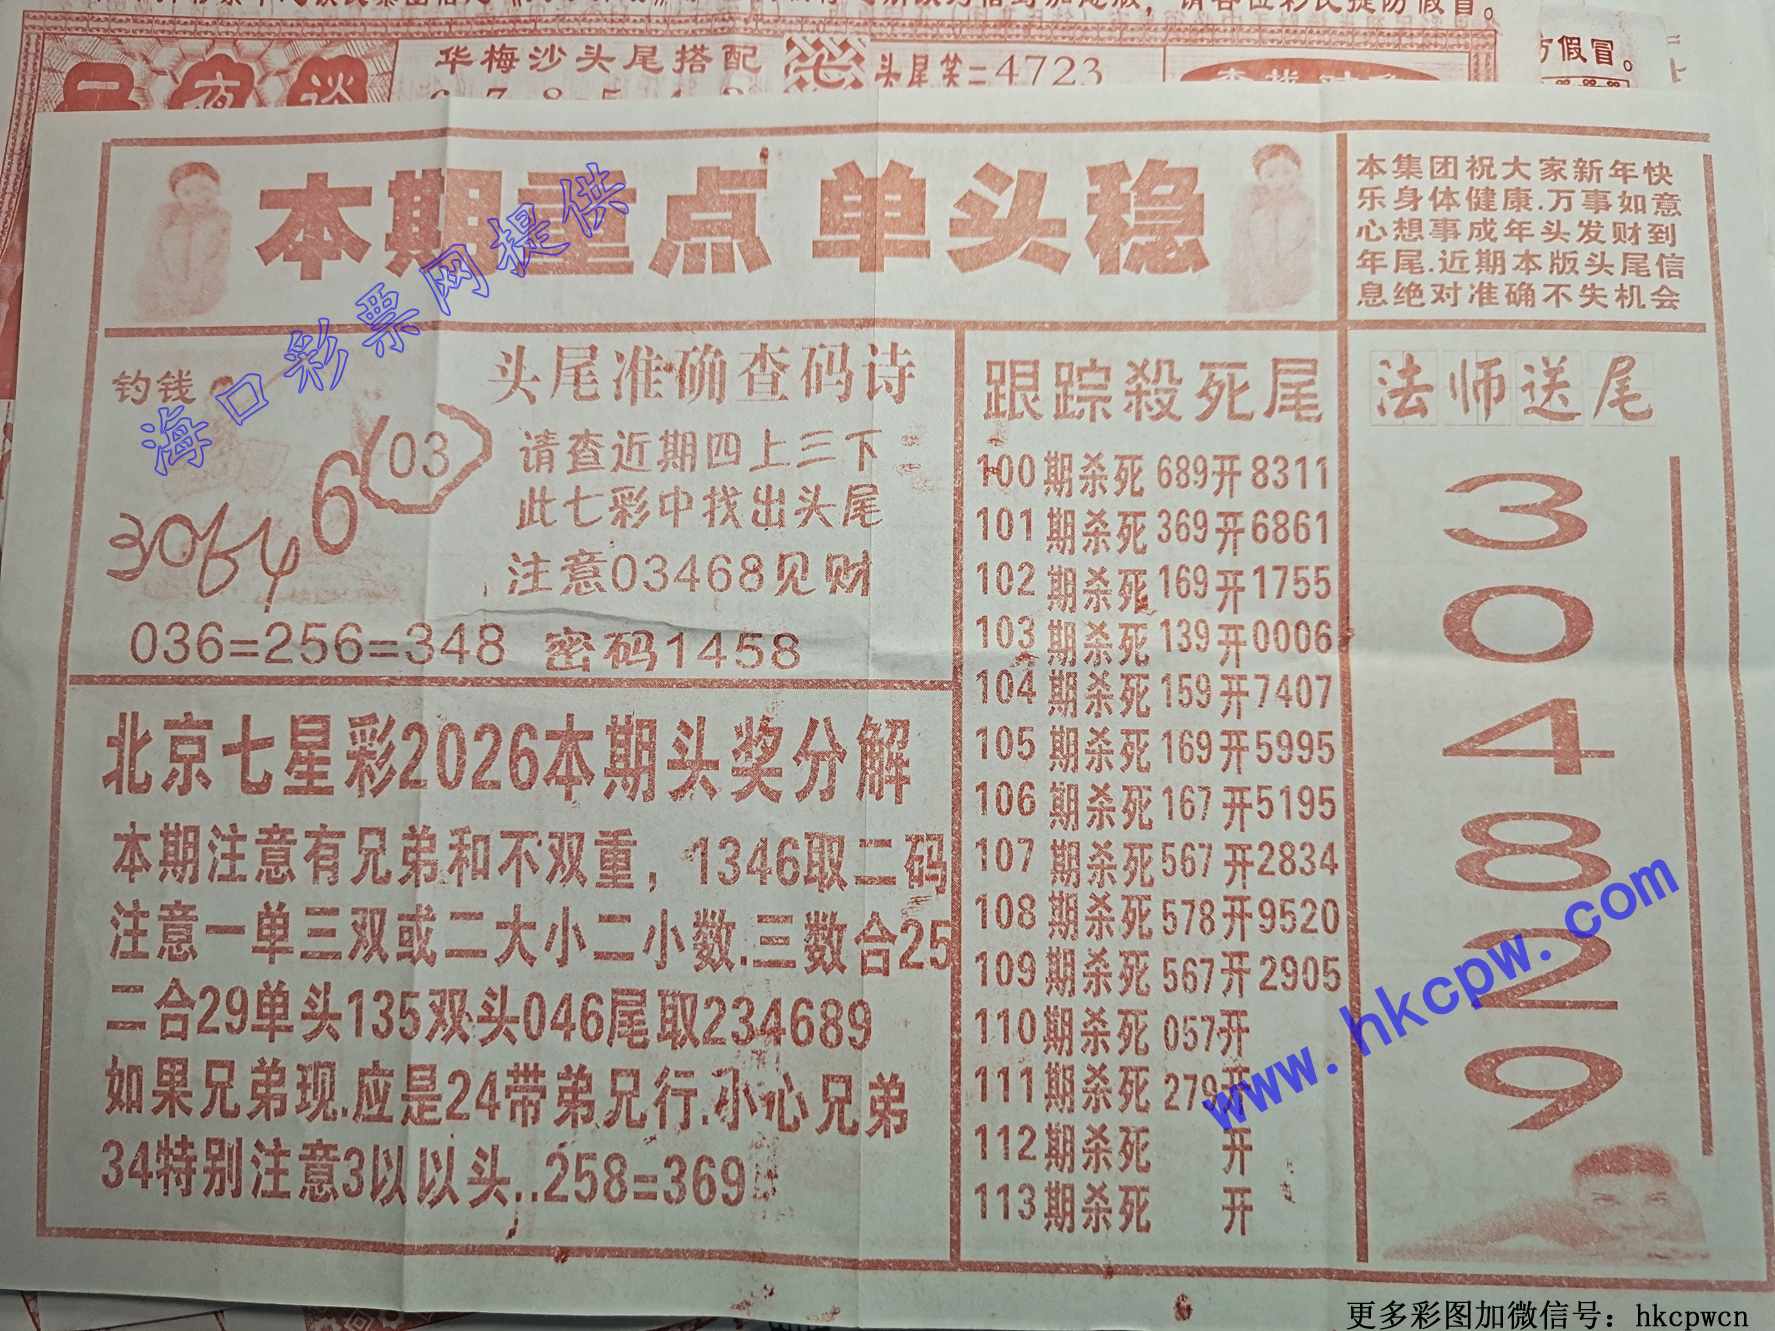 华梅沙头尾搭配
4723
方假冒。
请各位彩民提防假冒。
本期重点 单头稳
本集团祝大家新年快
乐身体健康.万事如意
心想事成年头发财到
年尾.近期本版头尾信
息绝对准确不失机会
钓钱
6
(03)
头尾准确查码诗
请查近期四上三下
此七彩中找出头尾
注意03468见财
036=256=348 密码1458
北京七星彩2026本期头奖分解
本期注意有兄弟和不双重，1346取二码
注意一单三双或二大小二小数.三数合25
二合29单头135双头046尾取234689
如果兄弟现.应是24带弟兄行.小心兄弟
34特别注意3以以头..258=369
跟踪殺死尾
100期杀死689开8311
101期杀死369开6861
102期杀死169开1755
103期杀死139开0006
104期杀死159开7407
105期杀死169开5995
106期杀死167开5195
107期杀死567开2834
108期杀死578开9520
109期杀死567开2905
110期杀死057开
111期杀死279开
112期杀死 开
113期杀死 开
法师送尾
3
0
4
8
2
9
海口彩票网提供
www.hkcpw.com
更多彩图加微信号：hkcpwcn